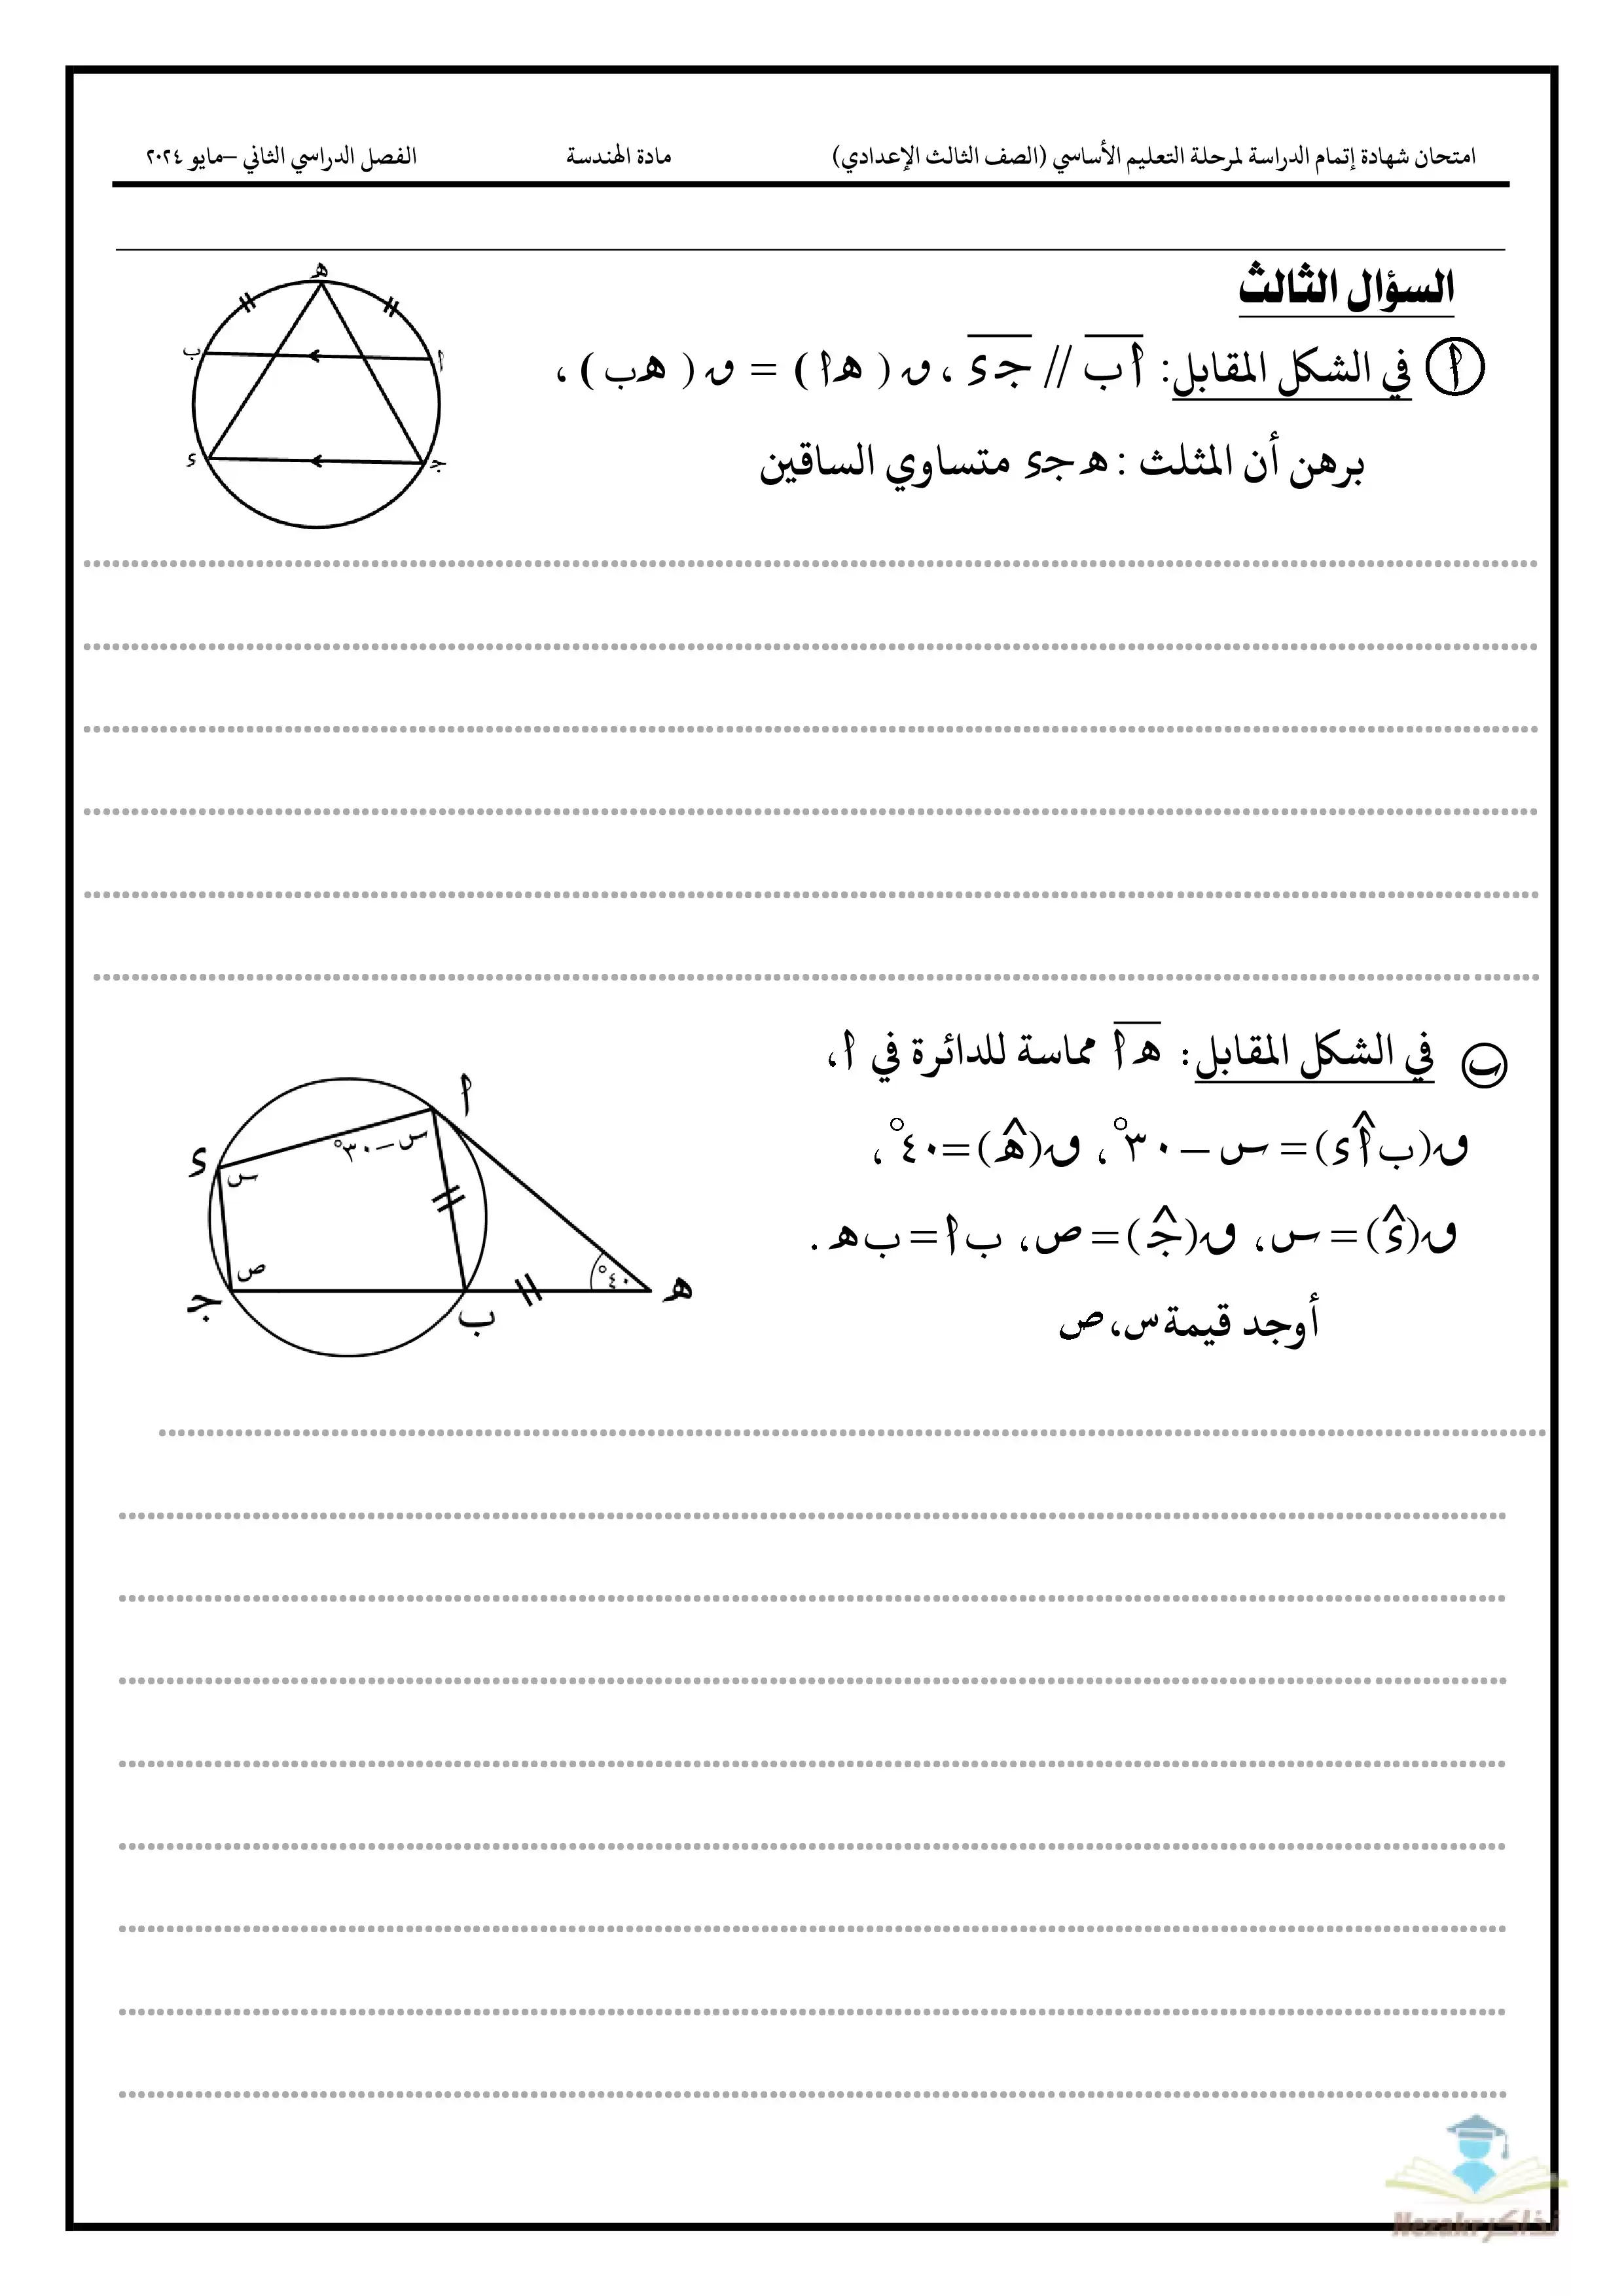 امتحان شهادة إتمام الدراسة لمرحلة التعليم الأساسي (الصف الثالث الإعدادي) مادة الهندسة الفصل الدراسي الثاني –مايو ٢٠٢٤
السؤال الثالث
ا في الشكل المقابل: اب // جـ ء ، ق ( هـ ا ) = ق ( هـ ب ) ،
برهن أن المثلث : هـ جـ ء متساوي الساقين
هـ
ب
ا
ء
جـ
ب في الشكل المقابل: هـ ا مماسة للدائرة في ا،
ق(ب ا ء) = س – ٣٠°، ق(هـ) = ٤٠°،
ق(ء) = س، ق(جـ) = ص، ب ا = ب هـ .
أوجد قيمة س، ص
ا
س – ٣٠°
ء
س
ص
٤٠°
هـ
جـ
ب
نذاكر Nezakr